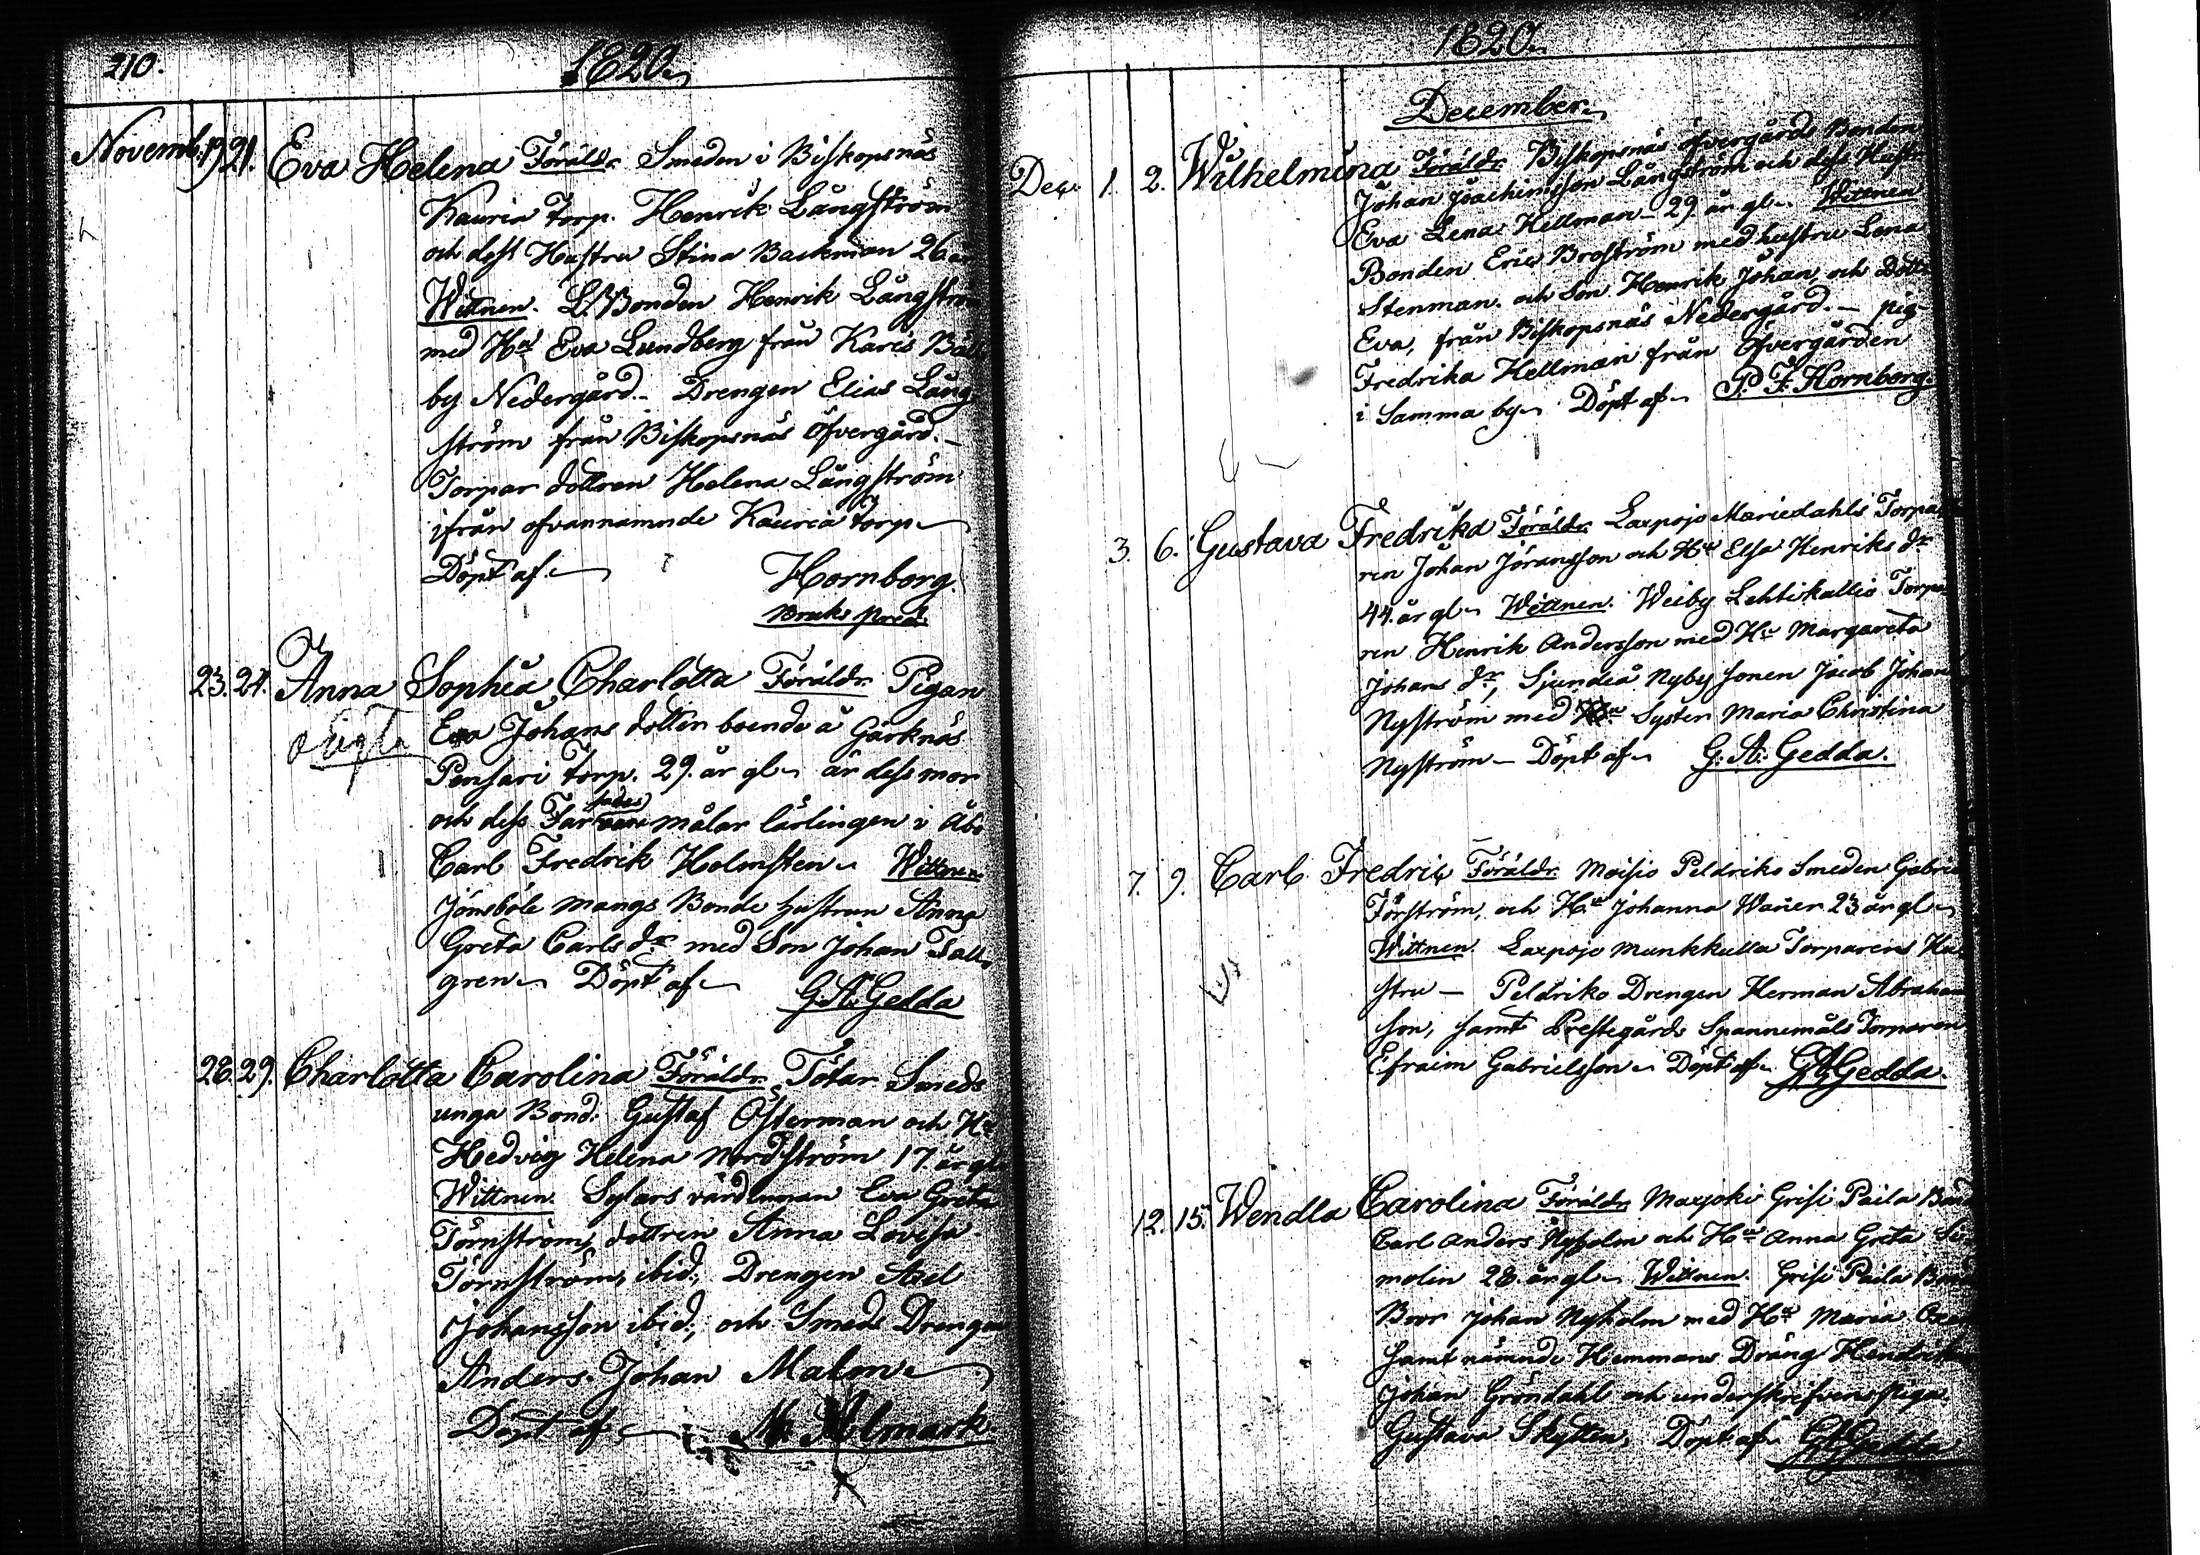 210.
1820.
Novemb. 19 21. Eva Helena Föräldr. Smeden i Biskopsnäs
Kauria Torp. Henrik Långström
och dess Hustru Stina Backman 26 år
Wittnen. Bonden Henrik Långström
med Hu Eva Lundberg från Karis Bäll
by Nedergård. Drengen Elias Lång
ström från Biskopsnäs Öfvergård.
Torpar dottren Helena Långström
ifrån ofvannamnde Kauria Torp
Döpt af
Hornborg.
Bruks pred.
23. 24. Anna Sophia Charlotta Föräldr. Pigan
oägta
Eva Johans dotter boende å Gårknäs
Pensari Torp. 29. år gl. är dess mor
och dess Far sades målar lärlingen i Åbo
Carl Fredrik Holmsten. Wittnen
Jönsböle Mangs Bonde hustrun Anna
Greta Carls dr med Son Johan Tall
gren. Döpt af
G. A. Gedda
28. 29. Charlotta Carolina Föräldr. Tötar Smeds
unga Bond. Gustaf Österman och Hu
Hedvig Helena Nordström 17. år gl.
Wittnen. värdinnan Eva Greta
Törnström, dottren Anna Lovisa
Törnström, ibid., Drengen Axel
Johansson ibid., och Smeds Drengen
Anders Johan Malm.
Döpt af M. Almark.
1820.
December.
Dec. 1. 2. Wilhelmina Föräldr. Biskopsnäs öfvergårds Bonden
Johan Joachimsson Långström och dess Hustru
Eva Lena Hellman 29 år gl. Wittnen
Bonden Eric Broström med hustru Lena
Stenman. och Son Henrik Johan, och Dott.
Eva, från Biskopsnäs Nedergård. – pig.
Fredrika Hellman från Öfvergården
i Samma by. Döpt af P. F. Hornborg.
3. 6. Gustava Fredrika Föräldr. Laxpojo Mariedahls Torpa
ren Johan Jöransson och Hu Elsa Henriks dr
44. år gl. Wittnen. Weiby Lehtikallio Torpa
ren Henrik Andersson med Hu Margareta
Johans dr, Sjundeå Nyby Sonen Jacob Johan
Nyström med Syster Maria Christina
Nyström – Döpt af G. A. Gedda.
7. 9. Carl Fredric Föräldr. Moisio Peldriko Smeden Gabriel
Törström, och Hu Johanna 23 år gl.
Wittnen. Laxpojo Munkkulla Torparens Hu
stru – Peldriko Drengen Herman Abraham
son, samt Prestegårds Spannemåls Torparen
Efraim Gabrielsson. Döpt af GAGedda.
12. 15. Wendla Carolina Föräldr. Maxjoki Grisi Paila
Carl Anders Nyholm och Hu Anna Greta
molin 28. år gl. Wittnen. Grisi Paila
Bror Johan Nyholm med Hu Maria
samt Hemmans Dräng Hendrik
Johan Gröndahl och piga
Gustava Skytten, Döpt af GAGedda